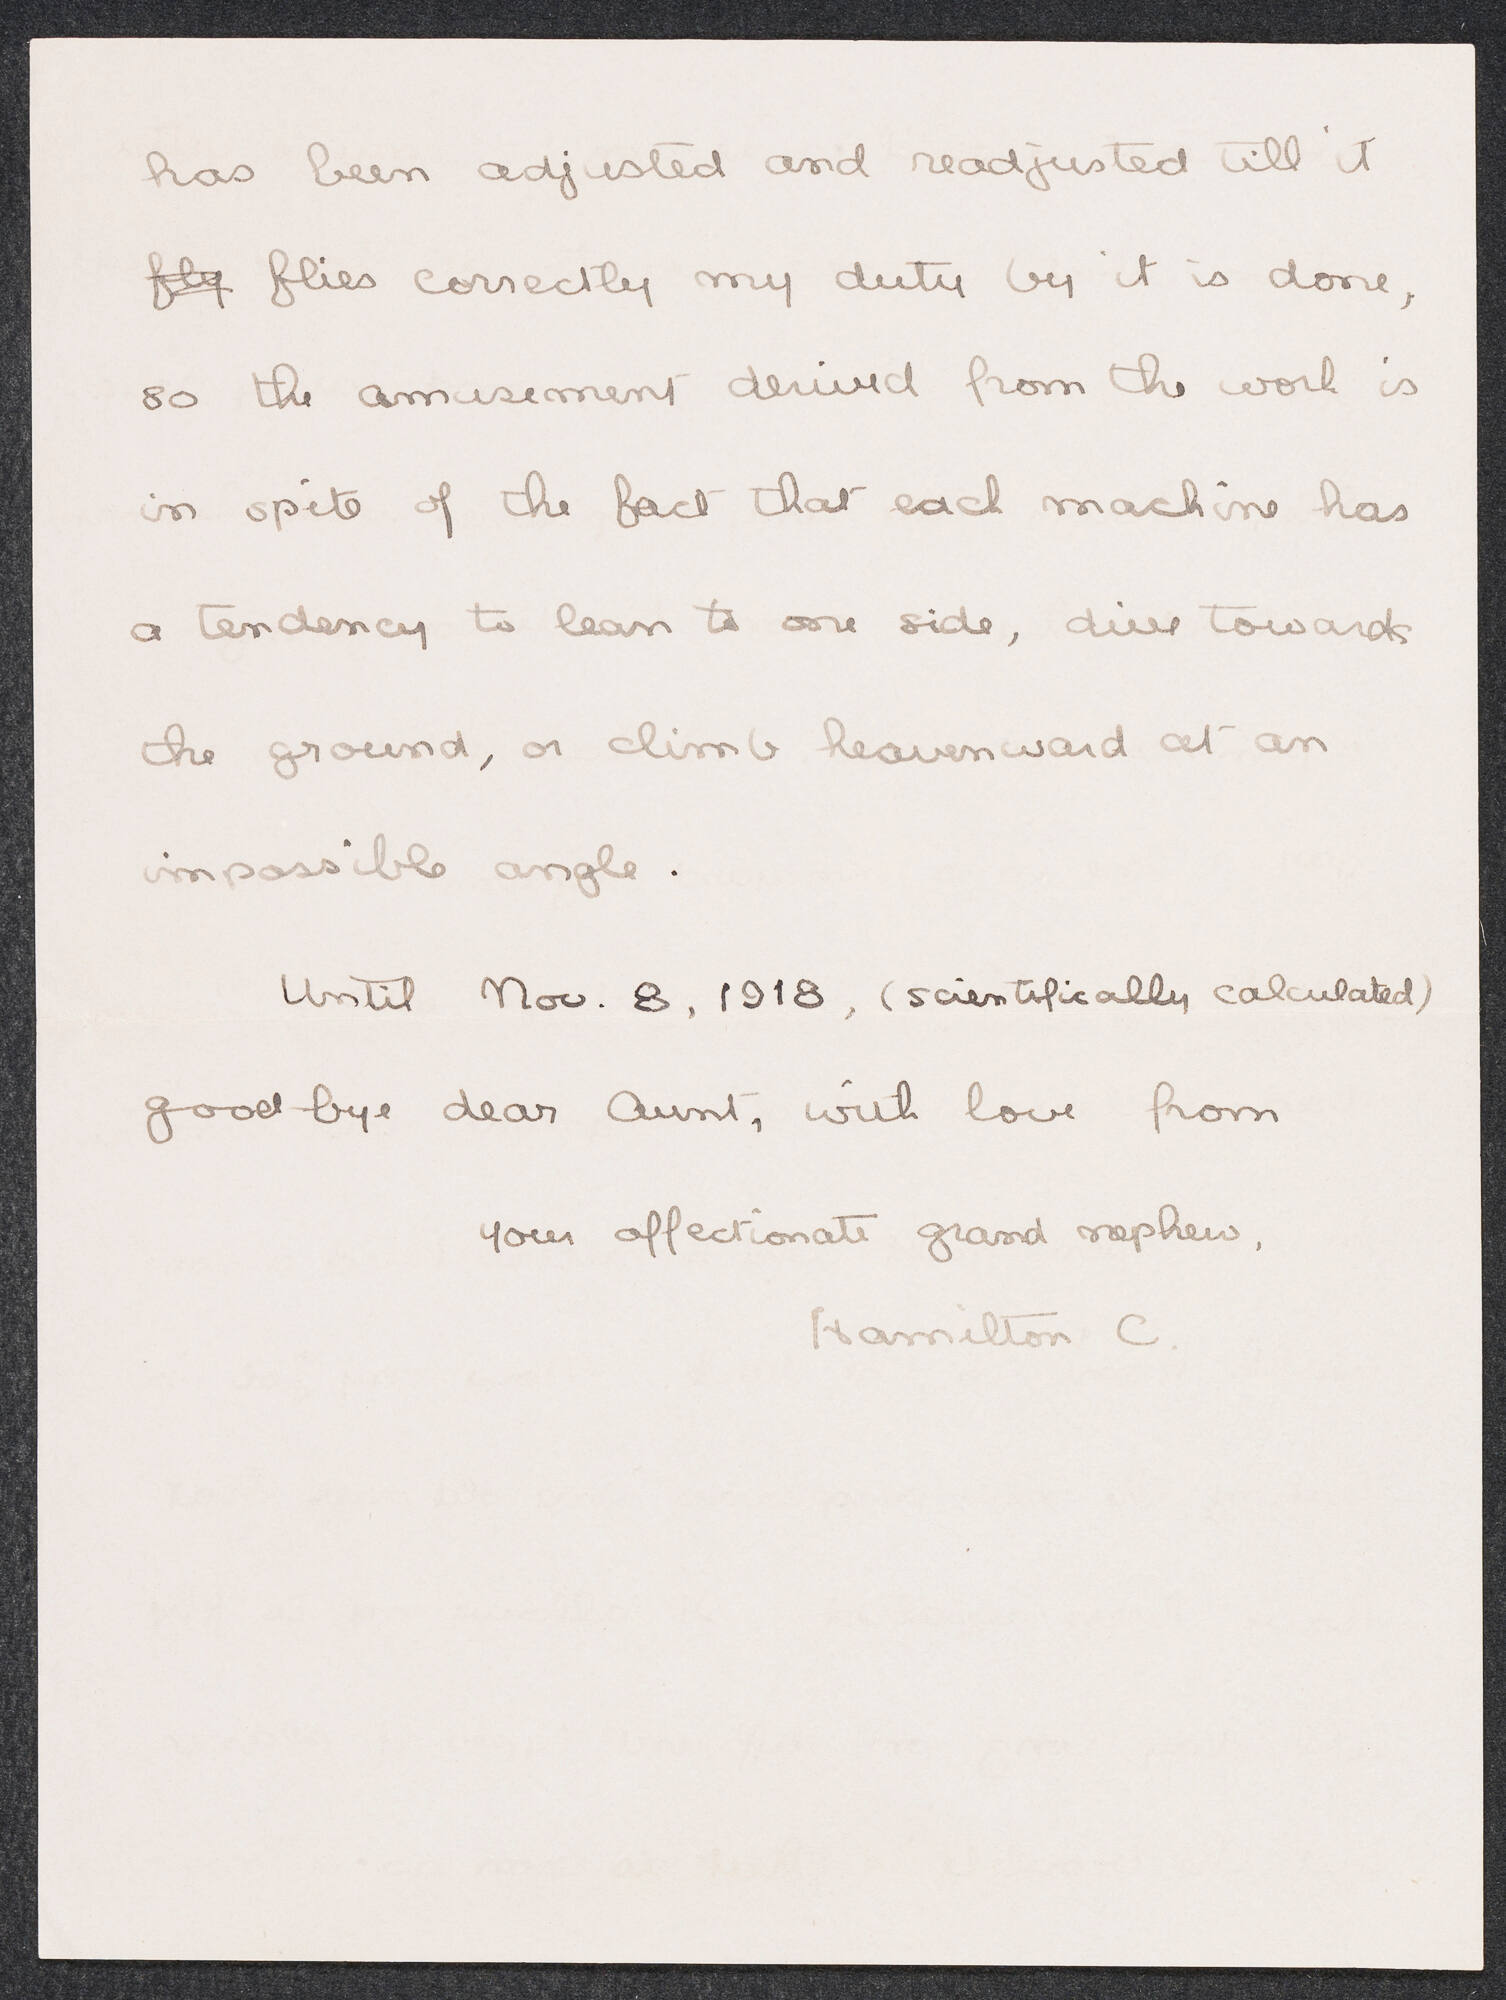 has been adjusted and readjusted till it
fly flies correctly my duty by it is done,
so the amusement derived from the work is
in spite of the fact that each machine has
a tendency to lean to one side, dive towards
the ground, or climb heavenward at an
impossible angle.
Until Nov. 8, 1918, (scientifically calculated)
good-bye dear Aunt, with love from
your affectionate grand nephew,
Hamilton C.